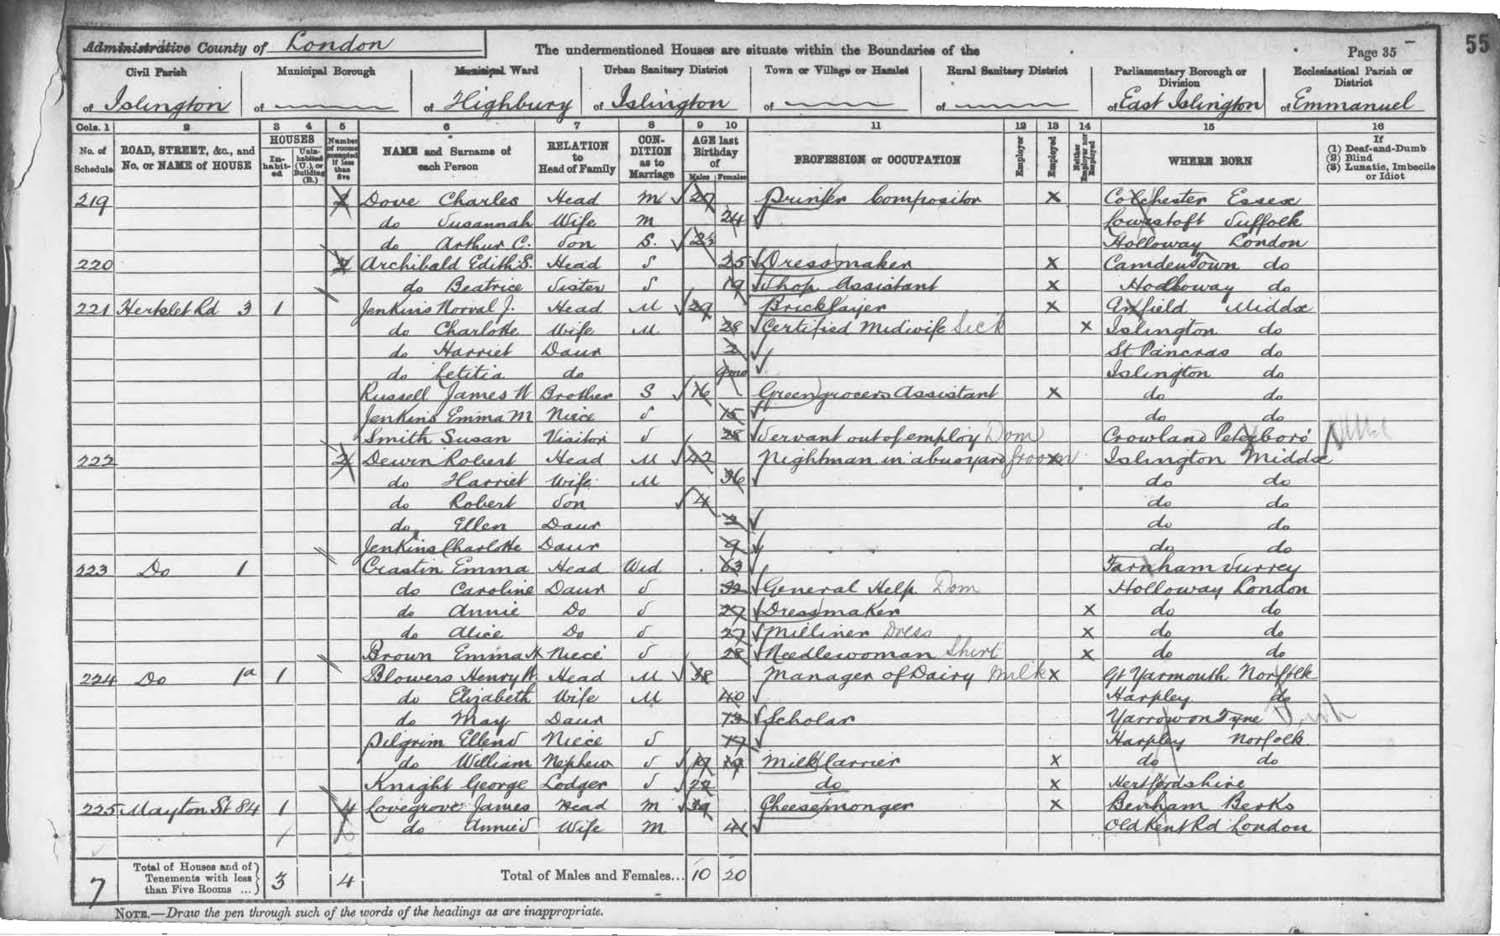 Administrative County of London The undermentioned Houses are situate within the Boundaries of the Page 35 55
Civil Parish Municipal Borough Municipal Ward Urban Sanitary District Town or Village or Hamlet Rural Sanitary District Parliamentary Borough or Division Ecclesiastical Parish or District
of Islington of of Highbury of Islington of of of East Islington of Emmanuel
Cols. 1 2 3 4 5 6 7 8 9 10 11 12 13 14 15 16
No. of Schedule ROAD, STREET, &c., and No. or NAME of HOUSE HOUSES Inhabited Uninhabited (U.) or Building (B.) Number of rooms occupied if less than five NAME and Surname of each Person RELATION to Head of Family CONDITION as to Marriage AGE last Birthday of Males Females PROFESSION or OCCUPATION Employer Employed Neither Employer nor Employed WHERE BORN If (1) Deaf-and-Dumb (2) Blind (3) Lunatic, Imbecile or Idiot
219 Dove Charles Head M Printer Compositor x Colchester Essex
do Susannah Wife M 24 Lowestoft Suffolk
do Arthur C. Son S. Holloway London
220 Archibald Edith S. Head S 25 Dressmaker x Camden Town do
do Beatrice Sister S 19 Shop Assistant x Holloway do
221 Herslet Rd 3 1 Jenkins Norval J. Head M 29 Bricklayer x Middx
do Charlotte Wife M 28 Certified Midwife Sick x Islington do
do Harriet Daur 2 St Pancras do
do Letitia do 9mo Islington do
Russell James W Brother S 16 Greengrocers Assistant x do do
Jenkins Emma M Niece S 15 do do
Smith Susan Visitor S 28 Servant out of employ Dom Crowland Peterboro'
222 Dewin Robert Head M 42 Nightman in Groom x Islington Middx
do Harriet Wife M 36 do do
do Robert Son 4 do do
do Ellen Daur 2 do do
Jenkins Charlotte Daur 9 do do
223 Do 1 Crastin Emma Head Wid 63 Farnham Surrey
do Caroline Daur S 32 General Help Dom Holloway London
do Annie Do S 27 Dressmaker x do do
do Alice Do S 27 Milliner Dress x do do
Brown Emma H Niece S 28 Needlewoman Shirt x do do
224 Do 1a 1 Blowers Henry W. Head M 38 Manager of Dairy Milk x Gt Yarmouth Norfolk
do Elizabeth Wife M 40 Harpley do
do May Daur 13 Scholar Yarrow on Tyne
Pilgrim Ellen Niece S 17 Harpley Norfolk
do William Nephew S 19 Milk Carrier x do do
Knight George Lodger S 22 do x Hertfordshire
225 Mayton St 84 1 4 Lovegrove James Head M 39 Cheesemonger x Benham Berks
do Annie Wife M 41 Old Kent Rd London
7 Total of Houses and of Tenements with less than Five Rooms ... 3 4 Total of Males and Females... 10 20
NOTE.—Draw the pen through such of the words of the headings as are inappropriate.